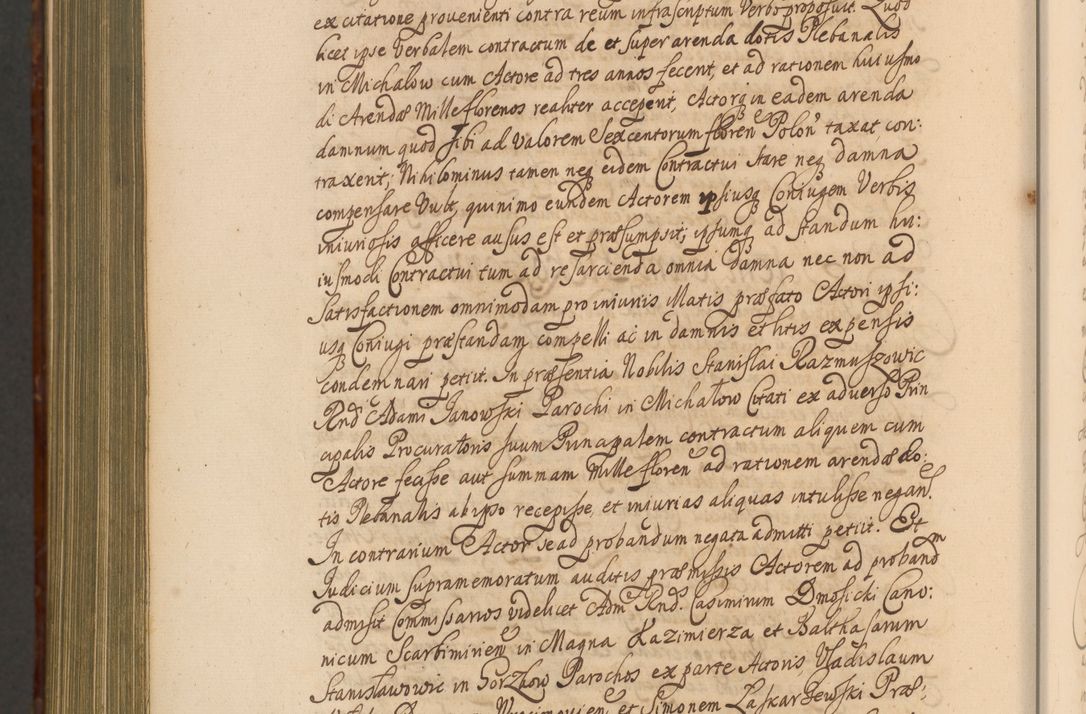 ex citatione provenienti contra reum infrascriptum Verbo proposuit. Quod
licet ipse Verbalem contractum de et super arenda dotis Plebanalis
in Michałow cum Actore ad tres annos fecerit, et ad rationem huiusmo
di Arendæ Mille florenos realiter acceperit, Actorq in eadem arenda
damnum quod sibi ad Valorem Sexcentorum floren Polon taxat con:
traxerit; Nihilominus tamen neq eidem Contractui stare neq damna
compensare Vult, quinimo eundem Actorem ipsiusq Coniugem Verbis
iniuriosis afficere ausus est et præsumpsit; ipsumq ad standum hu:
iusmodi Contractui tum ad resarcienda omnia damna nec non ad
Satisfactionem omnimodam pro iniuriis Matis præfato Actori ipsi:
usq Coniugi præstandam compelli ac in damnis et litis expensis
condemnari petiit. In præsentia Nobilis Stanislai Razmuszowic
Rnd Adami Janowski Parochi in Michałow Citati ex adverso Prin
cipalis Procuratoris suum Principalem contractum aliquem cum
Actore fecisse aut summam Mille floren ad rationem arendæ do:
tis Plebanalis ab ipso recepisse, et iniurias aliquas intulisse negan.
In contrarium Actor se ad probandum negata admitti petiit. Et
Judicium supramemoratum auditis præmissis Actorem ad proband
admisit Commissarios videlicet Adm Rnd. Casimirum Dmosicki Cano:
nicum Scarbimirien in Magna Kazimierza et Balthasarum
Stanisławowic in Gorzkow Parochos ex parte Actoris Vladislaum
et Simonem Łaskarzewski Præ: